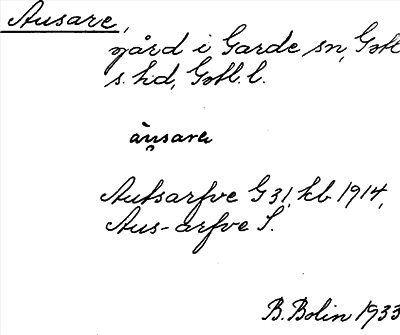 Ausare,
gård i Garde sn, Gotl
s. hd, Gotl. l.
àu̯sarε
Autsarfve G 31, kb 1914,
Aus-arfve S.
B. Bolin 1933